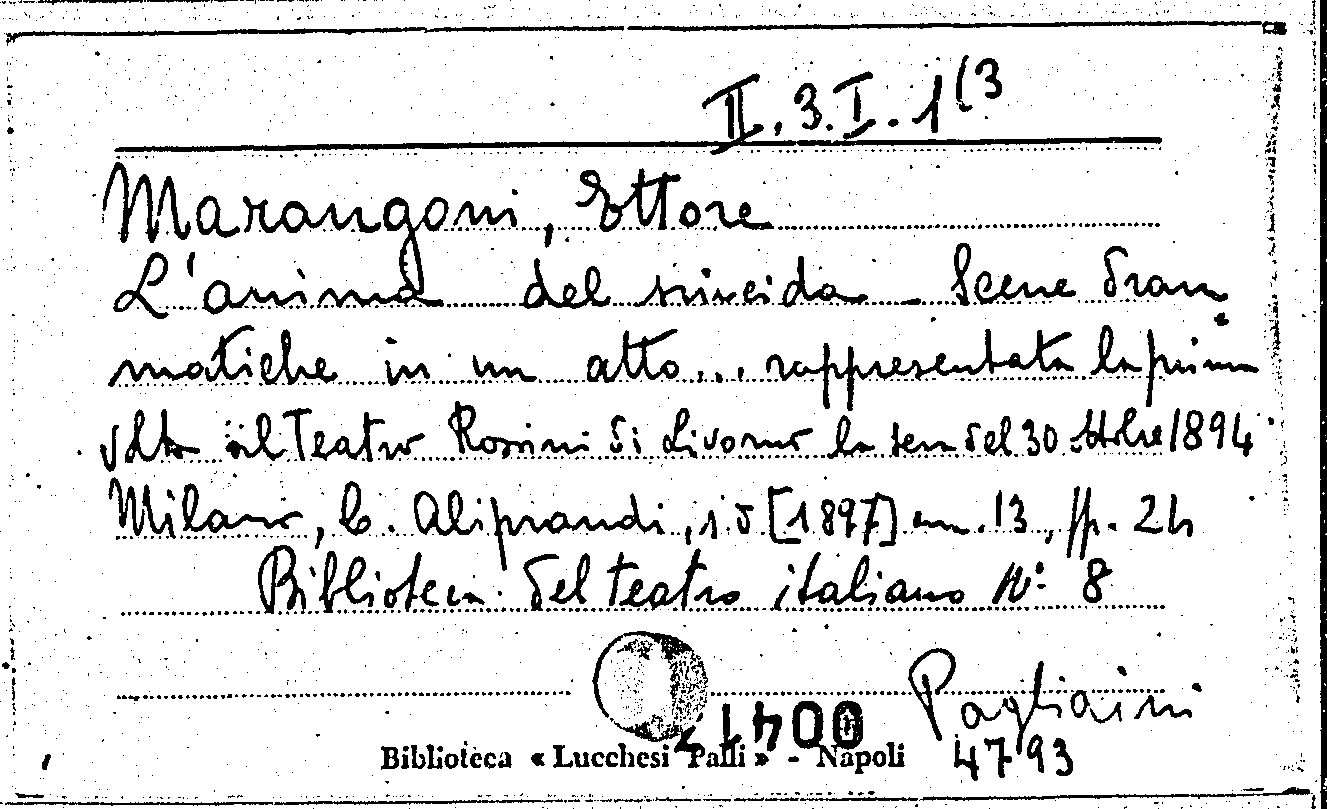 II. 3. I. 1(3
Marangoni, Ettore
L'anima del suicida - Scene dram
matiche in un atto... rappresentata la prima
volta al Teatro Rossini di Livorno la sera del 30 ottobre 1894
Milano, C. Aliprandi, s d [1897] cm. 13, pp. 24
Biblioteca del teatro italiano N° 8
Pagliaini
0041
Biblioteca « Lucchesi Palli » - Napoli
4793